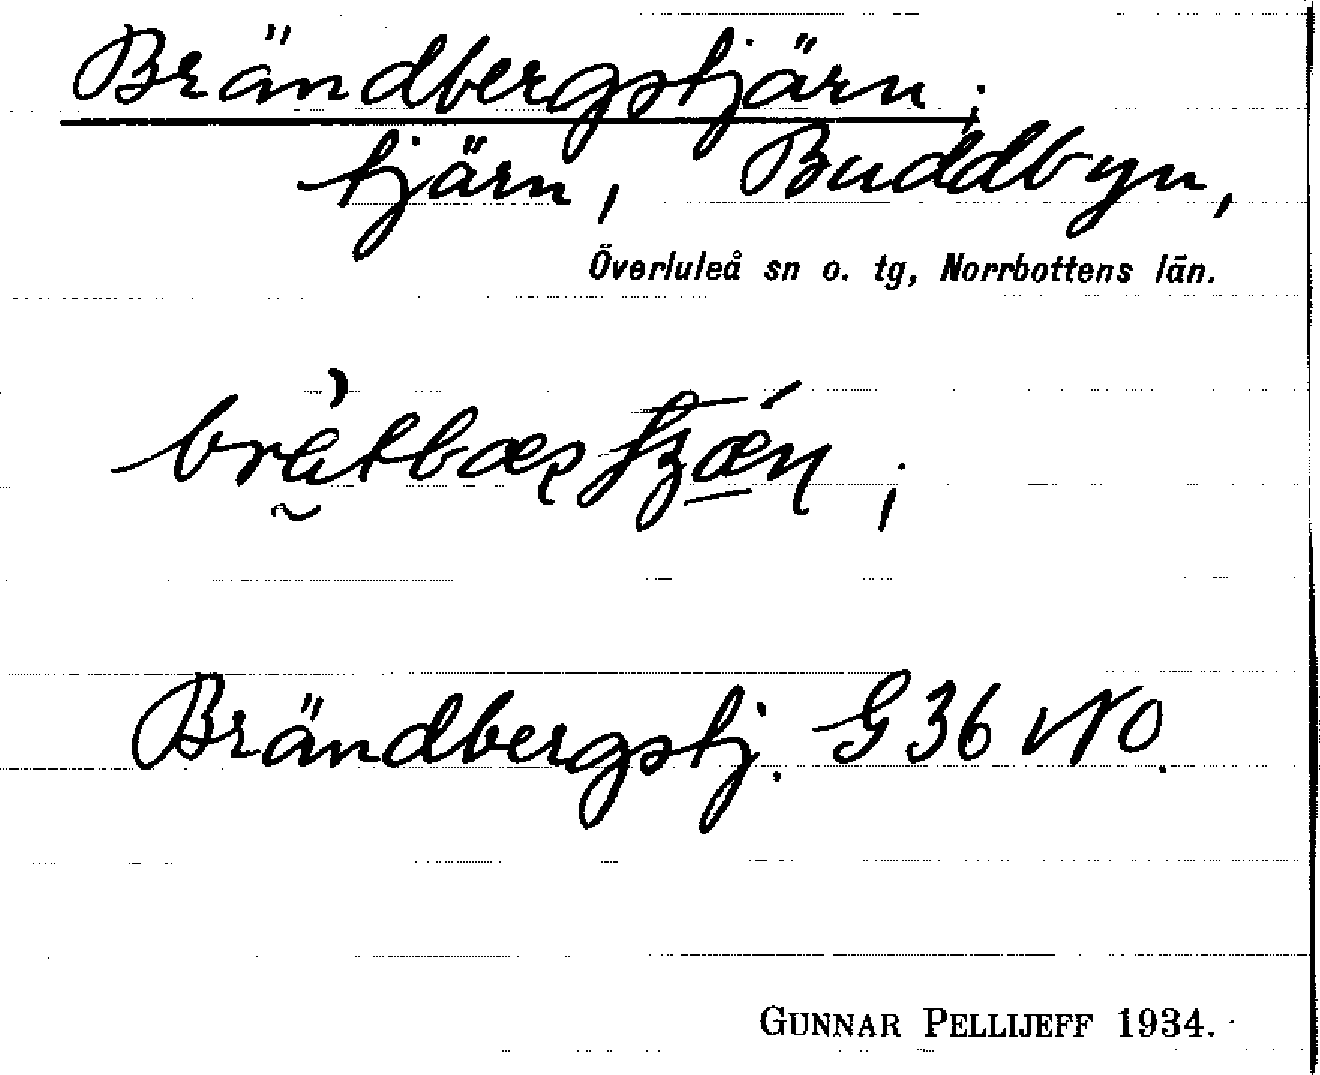 Brändbergstjärn;
tjärn, Buddbyn,
Överluleå sn o. tg, Norrbottens län.
Brändbergstj. G 36 NO.
GUNNAR PELLIJEFF 1934.